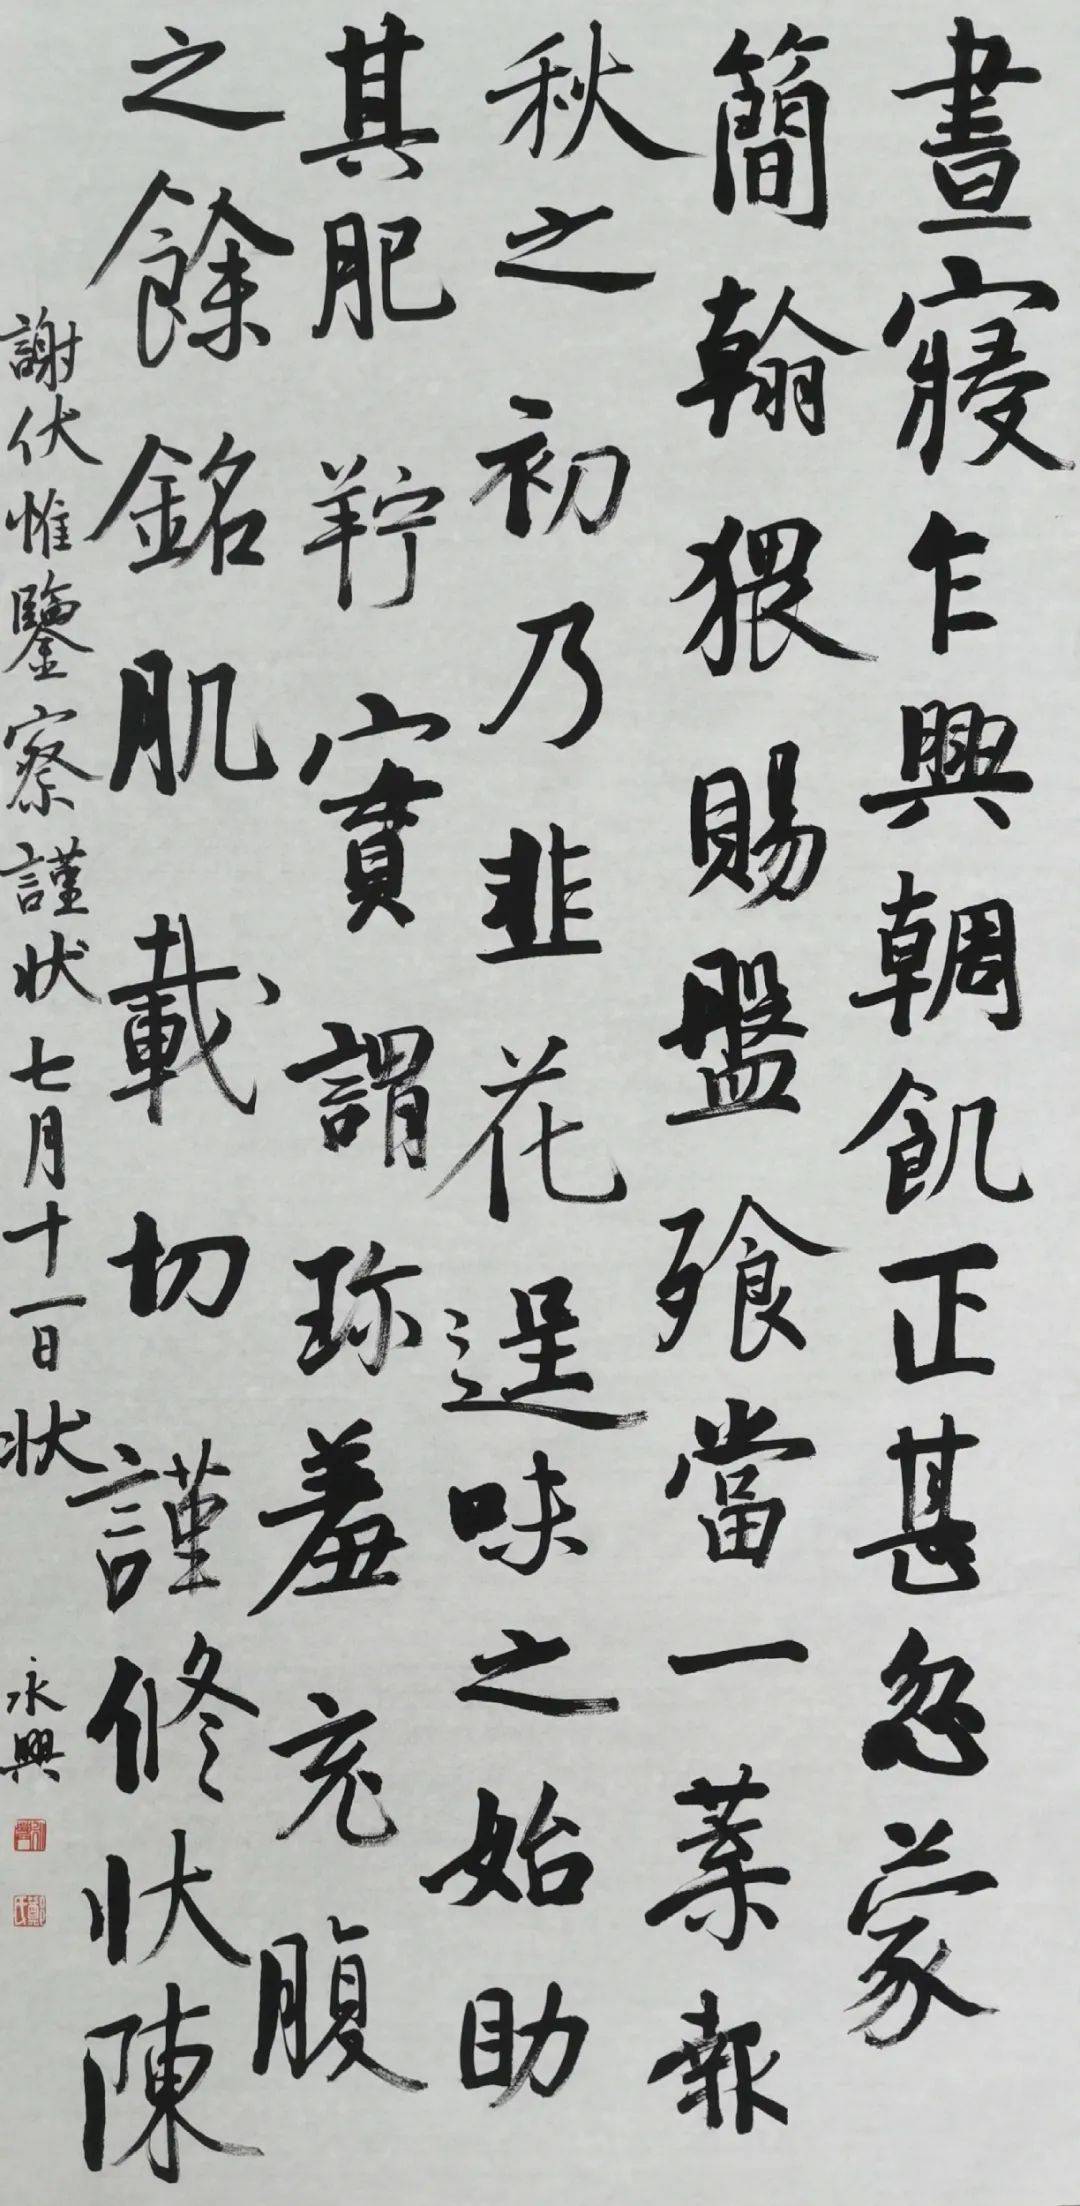 晝寢乍興輖飢正甚忽蒙
簡翰猥賜盤飱當一葉報
秋之初乃韭花逞味之始助
其肥羜實謂珎羞充腹
之餘銘肌載切謹修狀陳
謝伏惟鑒察謹狀七月十一日狀
永興